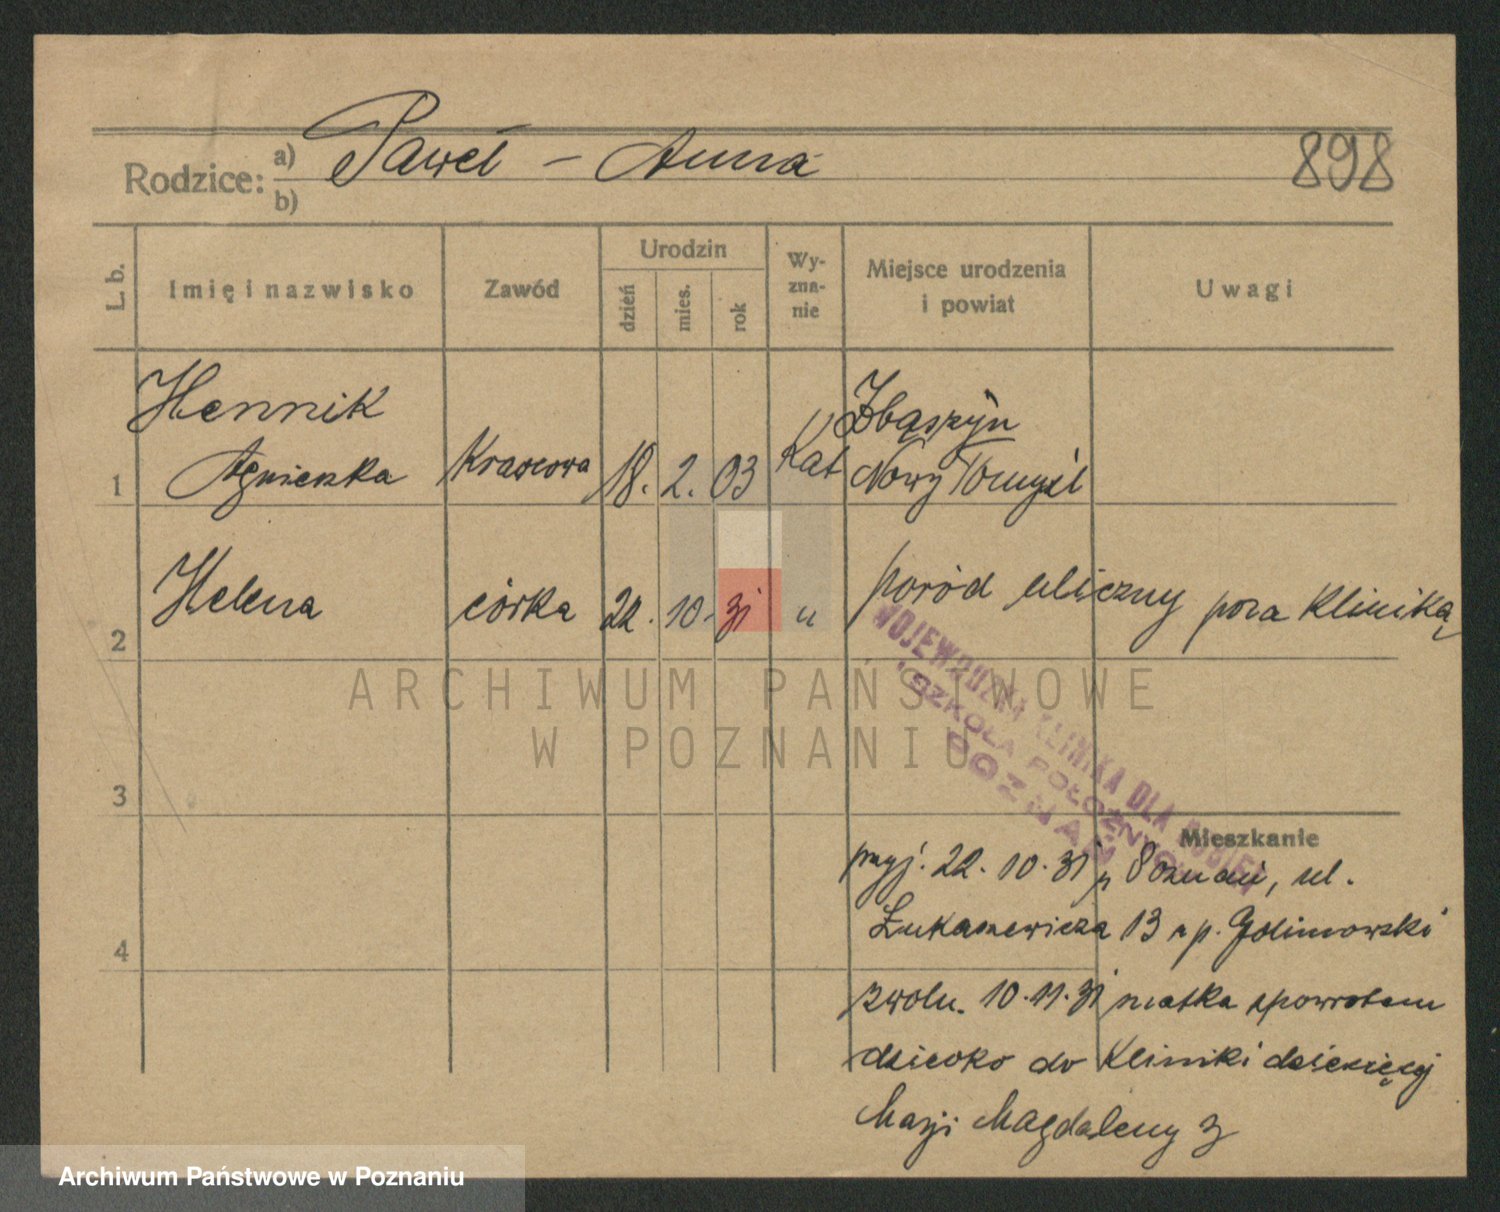 898
Rodzice: a) Paweł - Anna
b)
L. b.
Imię i nazwisko
Zawód
Urodzin
dzień
mies.
rok
Wy-
zna-
nie
Miejsce urodzenia
i powiat
Uwagi
1 Hennik
Agnieszka Krawcowa 18. 2. 03 Kat Zbąszyń
Nowy Tomyśl
2 Helena córka 22. 10. 31 " poród uliczny poza Kliniką
WOJEWÓDZKA KLINIKA DLA KOBIET
I SZKOŁA POŁOŻNYCH
POZNAŃ
3
4
Mieszkanie
przyj. 22. 10. 31 Poznań, ul.
Łukaszewicza 13 p. Golimowski
zwoln. 10. 11. 31 matka spowrotem
dziecko do Kliniki dziecięcej
Marji Magdaleny 3
ARCHIWUM PAŃSTWOWE
W POZNANIU
Archiwum Państwowe w Poznaniu